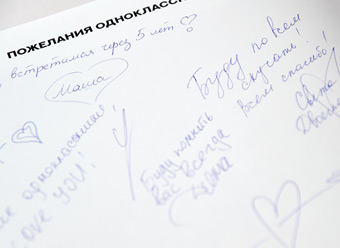 ПОЖЕЛАНИЯ ОДНОКЛАСС
встретимся через 5 лет
Маша
Буду по всем
скучать!
Всем спасибо!
Света
одноклассники,
LOVE YOU!
Буду помнить
Вас всегда
Дима